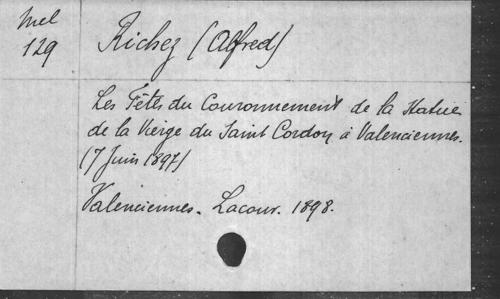 Mel
129
Richez (Alfred)
Les Fêtes du Couronnement de la Statue
de la Vierge du Saint Cordon à Valenciennes.
(7 Juin 1897)
Valenciennes. Lacour. 1898.